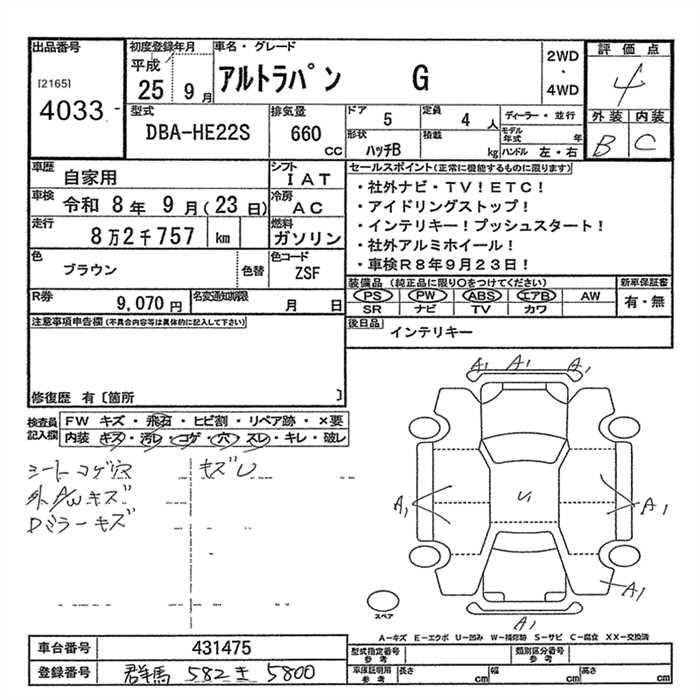 出品番号
[2165]
4033
初度登録年月
平成
25年9月
車名・グレード
アルトラパン G
2WD
・
4WD
評価点
4
外装 内装
B C
型式
DBA-HE22S
排気量
660
CC
ドア
5
定員
4人
ディーラー・並行
形状
ハッチB
積載
kg
モデル年式 年
ハンドル 左・右
車歴
自家用
シフト
IAT
車検
令和8年9月(23日)
冷房
AC
走行
8万2千757 km
燃料
ガソリン
色
ブラウン
色替
色コード
ZSF
セールスポイント(正常に機能するものに限ります)
・社外ナビ・TV!ETC!
・アイドリングストップ!
・インテリキー!プッシュスタート!
・社外アルミホイール!
・車検R8年9月23日!
R券
9,070円
名変通知期限
月 日
装備品 (純正品に限り○をつけてください)
PS PW ABS エアB AW
SR ナビ TV カワ
新車保証書
有・無
後日品
インテリキー
注意事項申告欄(不具合内容等は具体的に記入して下さい)
修復歴 有〔箇所 〕
検査員記入欄
FW キズ・飛石・ヒビ割・リペア跡・×要
内装 キズ・汚レ・コゲ・穴・スレ・キレ・破レ
シートコゲ穴 キズレ
外A/Wキズ
Dミラーキズ
A1 A1 A1
A1 U1 A1
A1
A1
スペア
A-キズ E-エクボ U-凹み W-補修跡 S-サビ C-腐食 XX-交換済
車台番号
431475
登録番号
群馬 582 き 5800
型式指定番号
参考
類別区分番号
参考
車庫証明用
参考
長さ cm 幅 cm 高さ cm